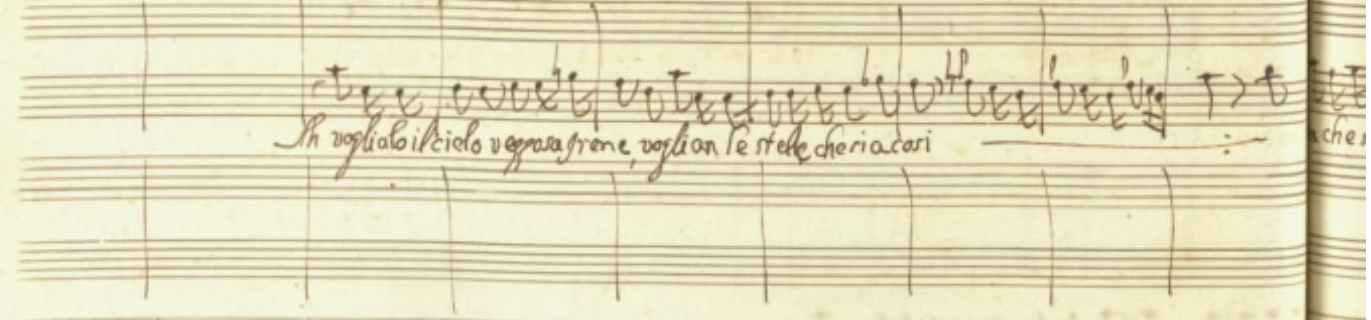 Ah voglialo il cielo vezzosa Irene, voglian le stelle che sia cosi